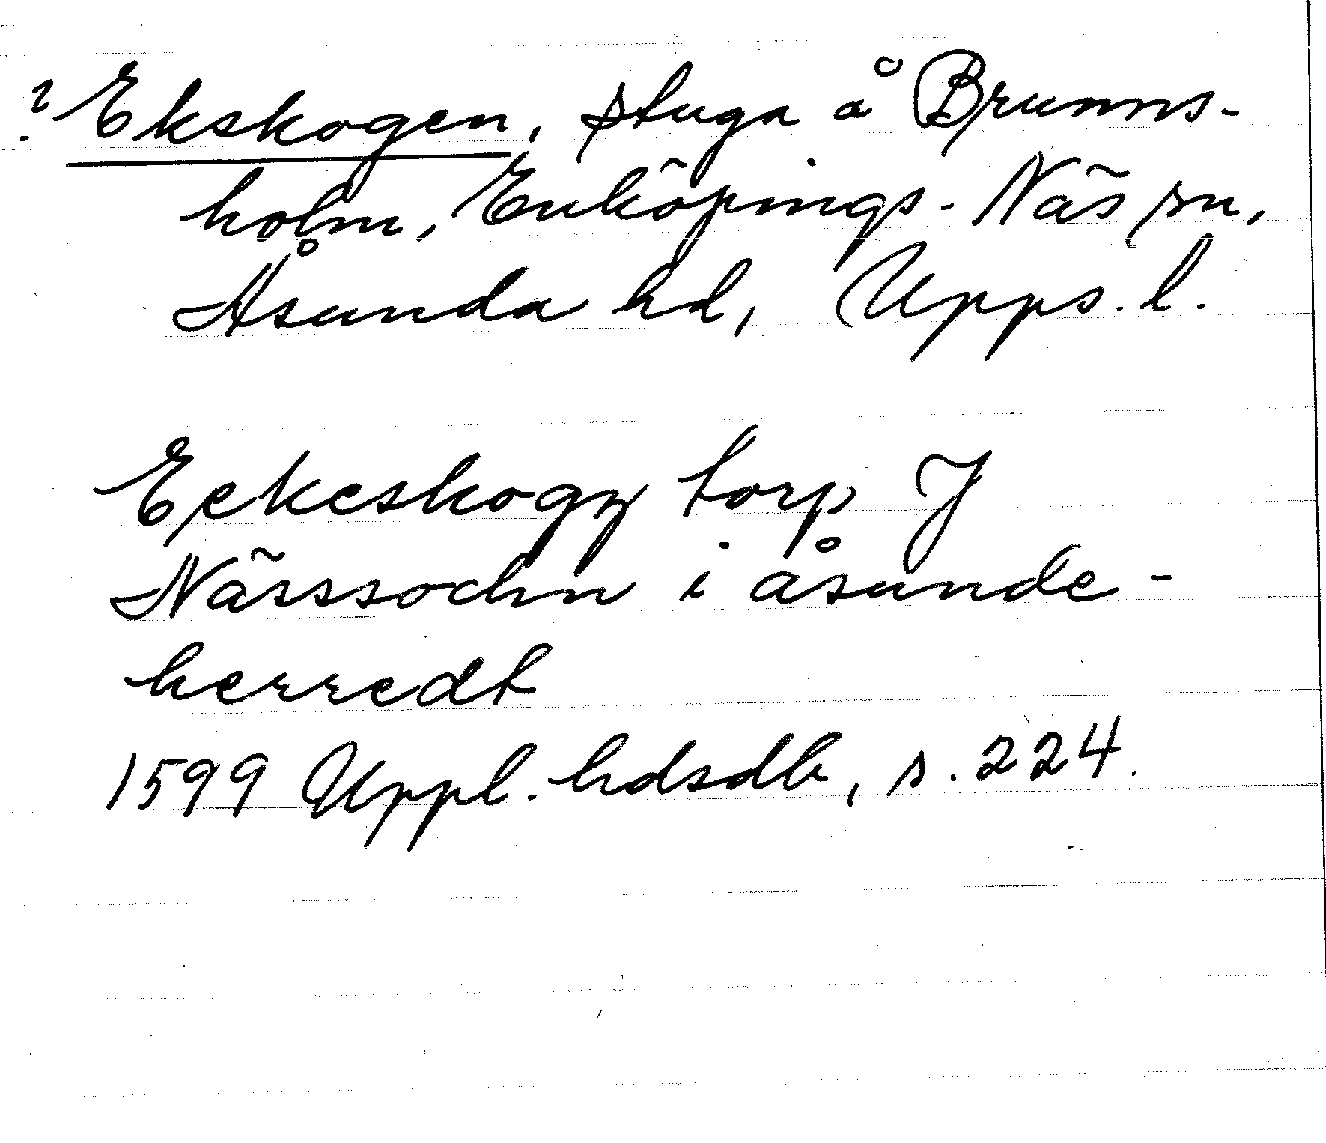 ? Ekskogen, stuga å Brunns-
holm, Enköpings-Näs sn,
Åsunda hd, Upps. l.
Eckeskogz torp J
Nässsochn i åsunde-
herredt
1599 Uppl. hdsdb, s. 224.